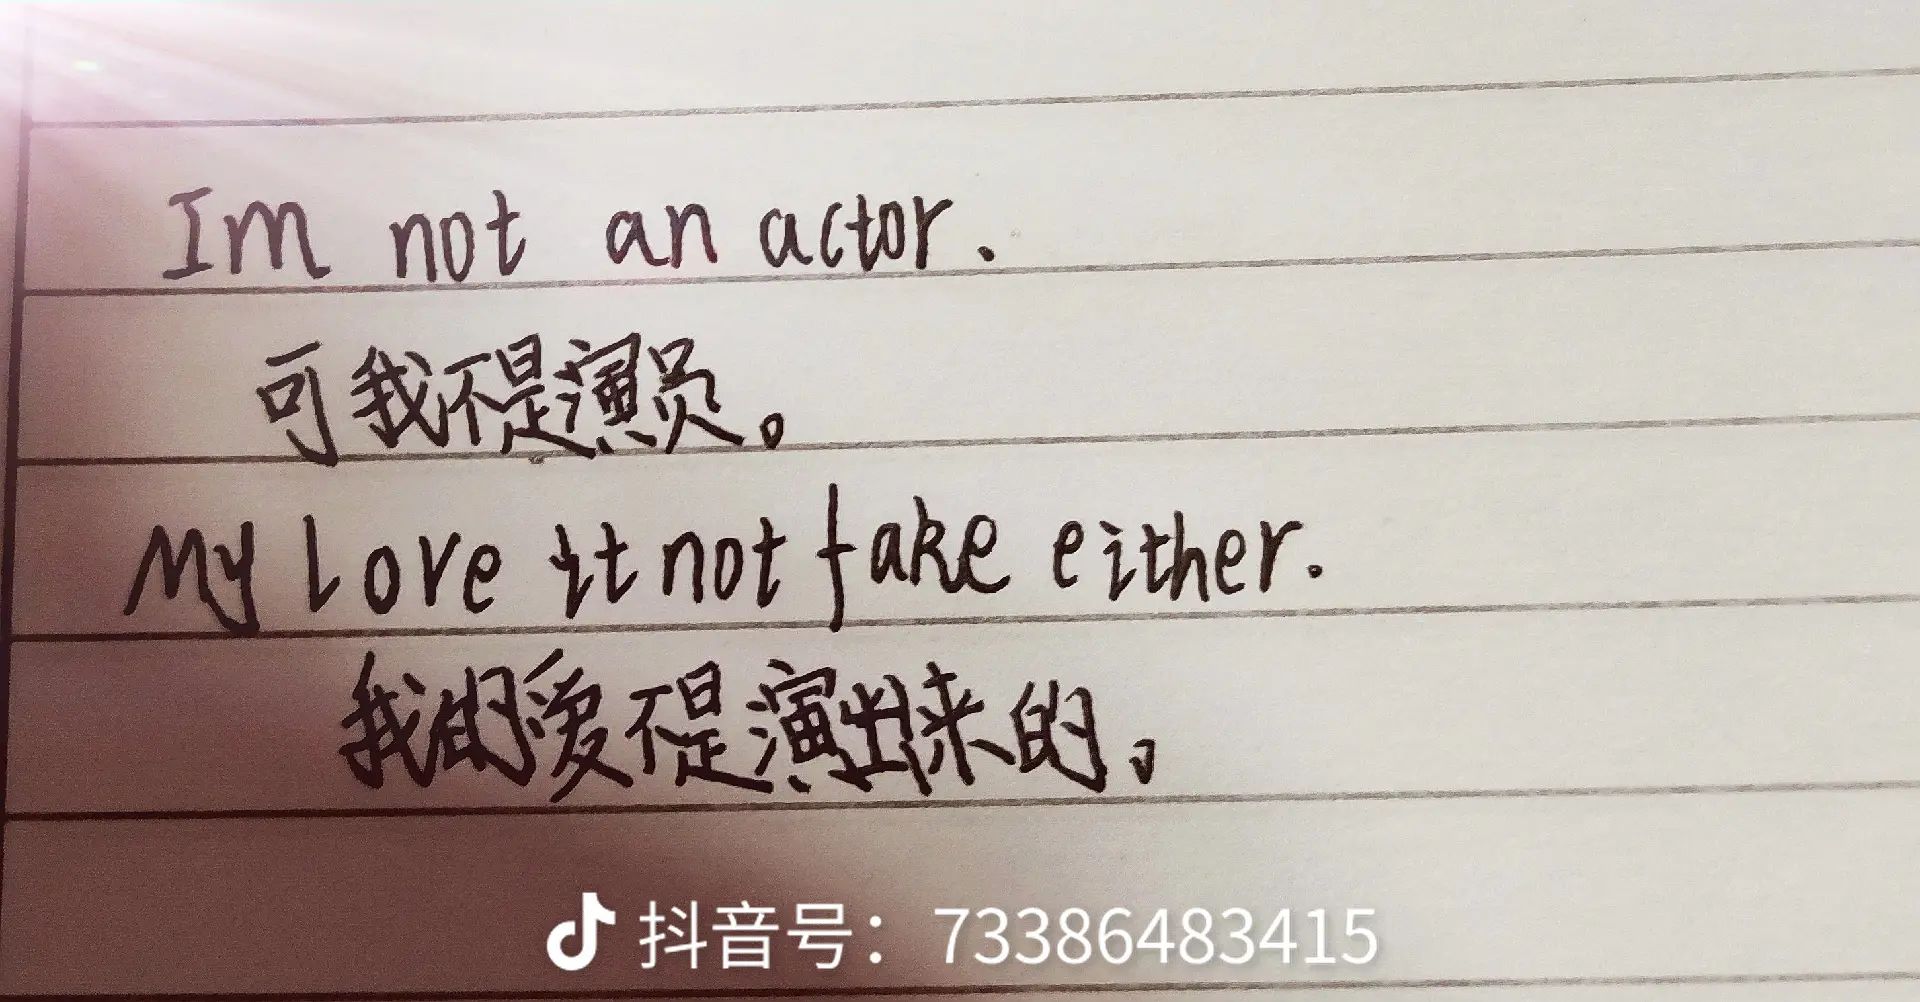 Im not an actor.
可我不是演员。
My love it not fake either.
我的爱不是演出来的。
抖音号：73386483415